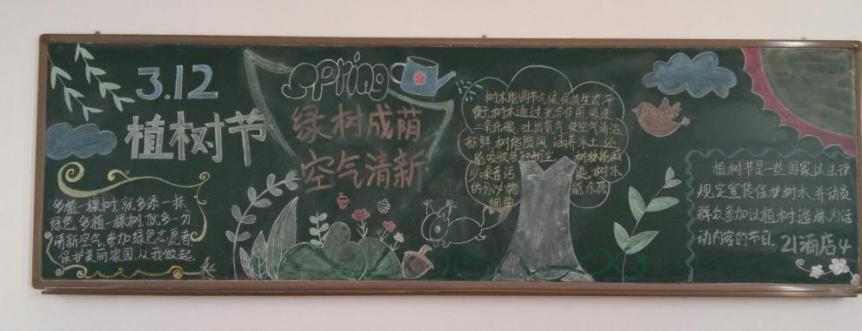 3.12
植树节
多植一棵树,就多添一抹
绿色,多植一棵树,就多一分
清新空气,参加绿色志愿者
保护美丽家园,从我做起。
Spring
绿树成荫
空气清新
树木能调节气候,保持生态平
衡,树木通过光合作用,吸进
二氧化碳,吐出氧气,使空气清洁
新鲜,树能防风
涵养水土,还
能吸收各种粉尘
树林能减
少噪音污
染,树木
的分泌物
能杀死
细菌
植树节是一些国家以法律
规定宣传保护树木,并动员
群众参加以植树造林为活
动内容的节日。
21酒店4